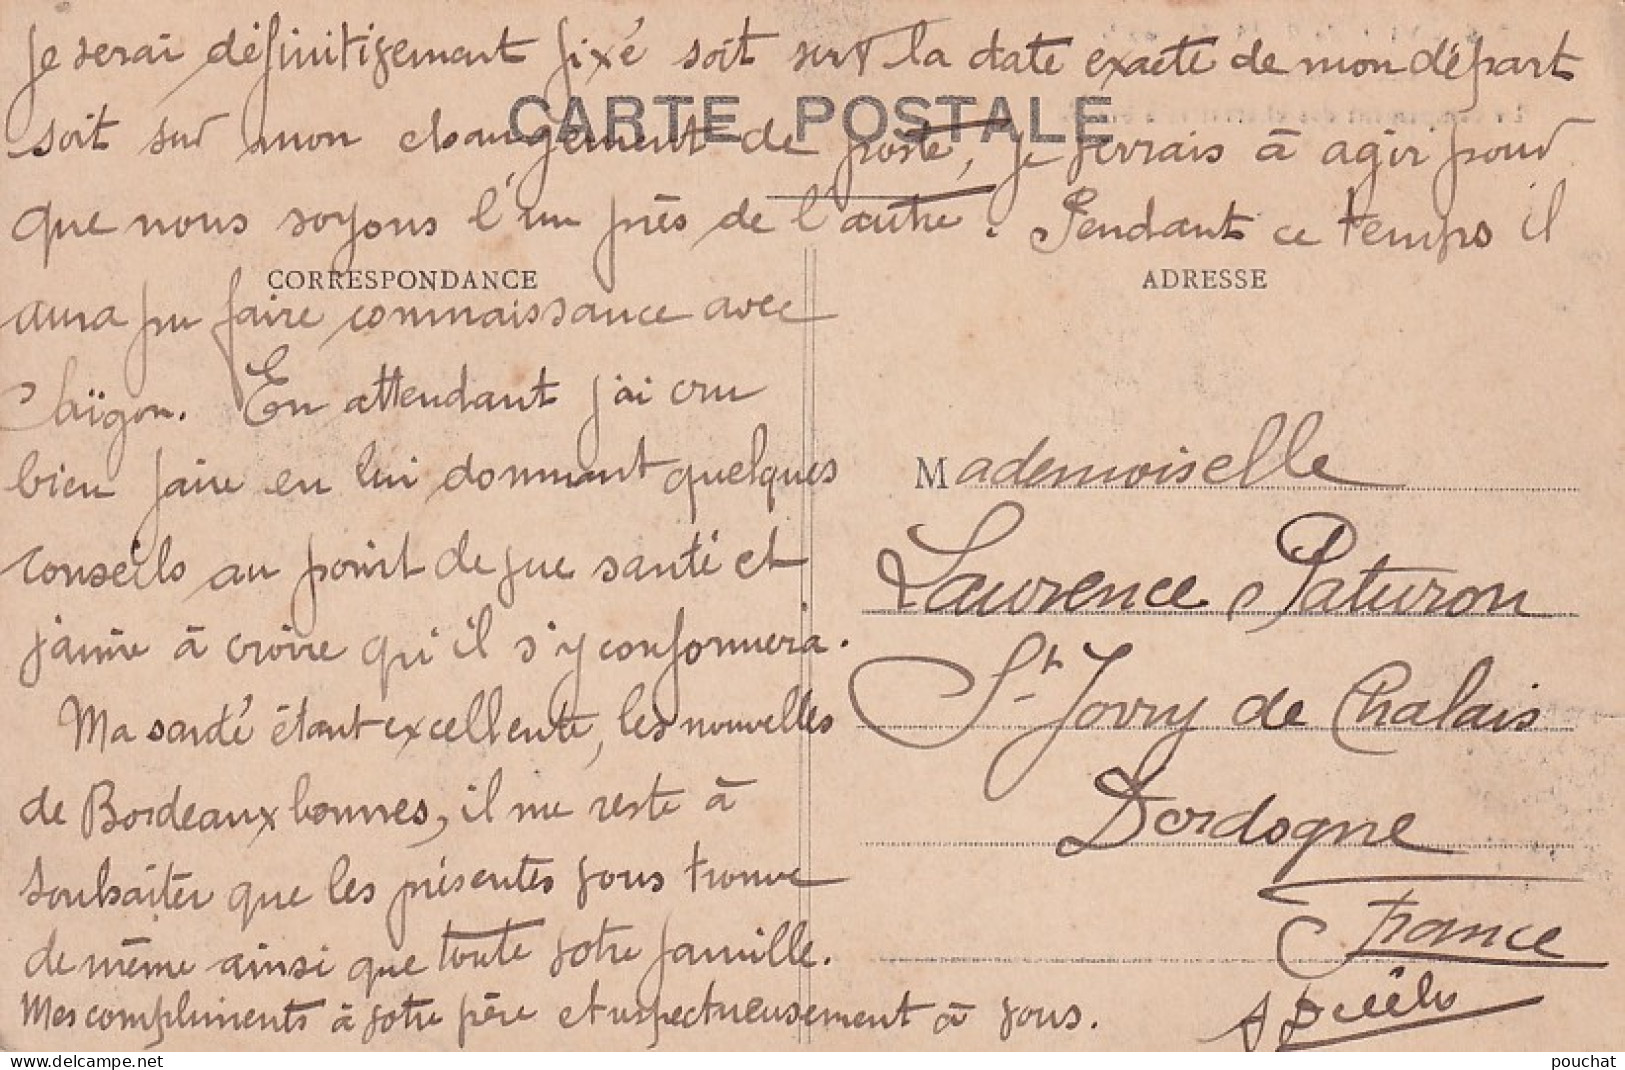 je serai définitivement fixé soit sur la date exacte de mon départ
CARTE POSTALE
soit sur mon changement de poste, je verrais à agir pour
que nous soyons l'un près de l'autre. Pendant ce temps il
CORRESPONDANCE
aura pu faire connaissance avec
Chaïgon. En attendant j'ai cru
bien faire en lui donnant quelques
conseils au point de vue santé et
j'aime à croire qu'il s'y conformera.
Ma santé étant excellente, les nouvelles
de Bordeaux bonnes, il me reste à
souhaiter que les présentes vous trouve
de même ainsi que toute votre famille.
Mes compliments à votre père et respectueusement à vous.
ADRESSE
Mademoiselle
Laurence Paturon
St Jovry de Chalais
Dordogne
France
pouchat